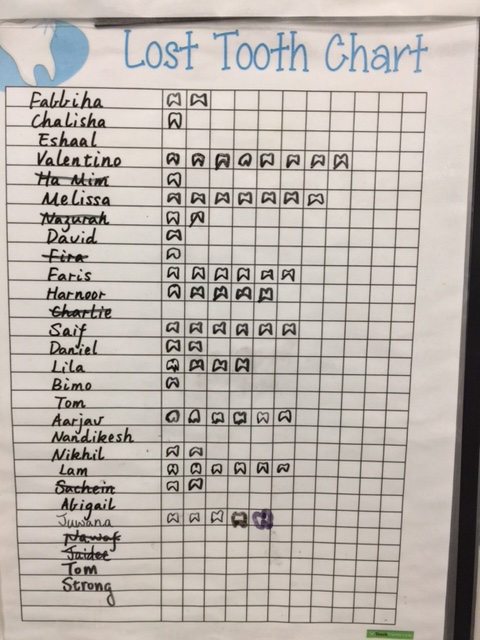 Lost Tooth Chart
Fabbiha
Chalisha
Eshaal
Valentino
Ha Mim
Melissa
Nazurah
David
Fira
Faris
Harnoor
Charlie
Saif
Daniel
Lila
Bimo
Tom
Aarjav
Nandikesh
Nikhil
Lam
Sachein
Abigail
Juwana
Nawaf
Tom
Strong